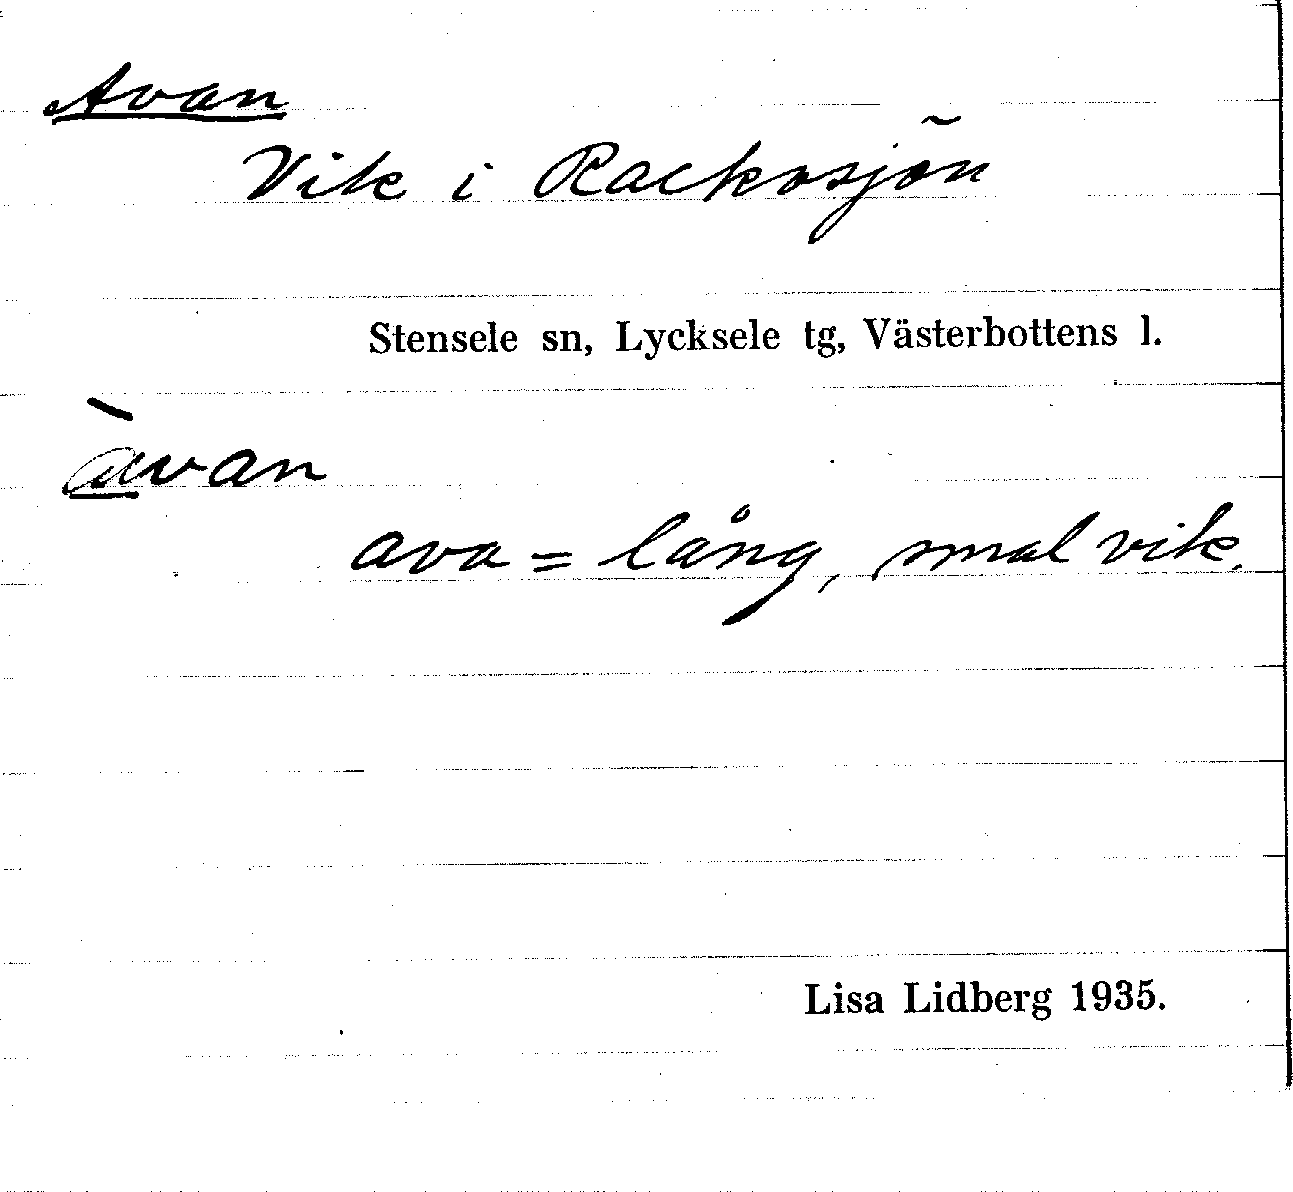 Avan
Vik i Rackosjön
Stensele sn, Lycksele tg, Västerbottens l.
àvan
ava = lång, smal vik.
Lisa Lidberg 1935.